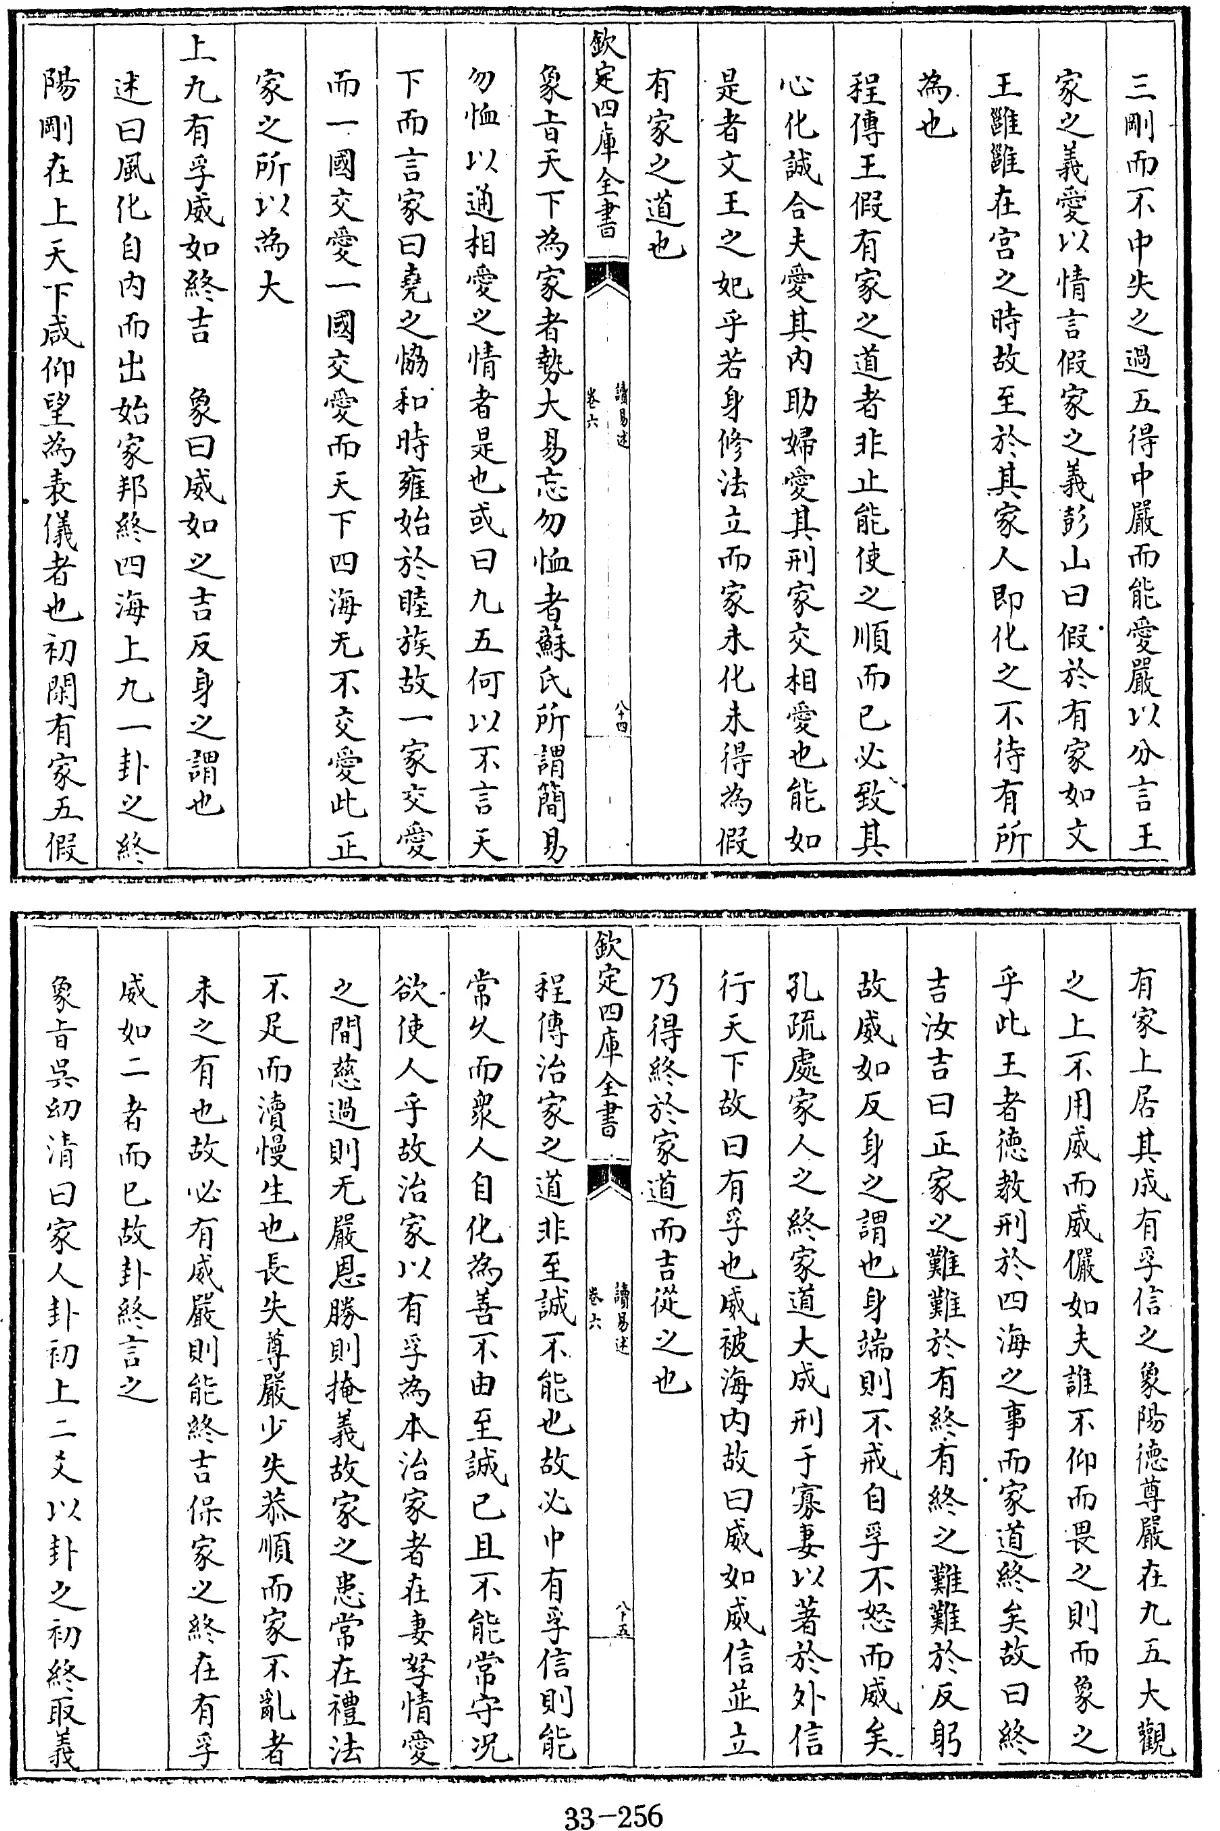 三剛而不中失之過五得中嚴而能愛嚴以分言王
家之義愛以情言假家之義彭山曰假於有家如文
王雝雝在宮之時故至於其家人即化之不待有所
為也
程傳王假有家之道者非止能使之順而已必致其
心化誠合夫愛其內助婦愛其刑家交相愛也能如
是者文王之妃乎若身修法立而家未化未得為假
有家之道也
欽定四庫全書
讀易述
卷六
八十四
象旨天下為家者勢大易忘勿恤者蘇氏所謂簡易
勿恤以通相愛之情者是也或曰九五何以不言天
下而言家曰堯之協和時雍始於睦族故一家交愛
而一國交愛一國交愛而天下四海无不交愛此正
家之所以為大
上九有孚威如終吉 象曰威如之吉反身之謂也
述曰風化自內而出始家邦終四海上九一卦之終
陽剛在上天下咸仰望為表儀者也初閑有家五假
有家上居其成有孚信之象陽德尊嚴在九五大觀
之上不用威而威儼如夫誰不仰而畏之則而象之
乎此王者德教刑於四海之事而家道終矣故曰終
吉汝吉曰正家之難難於有終有終之難難於反躬
故威如反身之謂也身端則不戒自孚不怒而威矣
孔疏處家人之終家道大成刑于寡妻以著於外信
行天下故曰有孚也威被海內故曰威如威信並立
乃得終於家道而吉從之也
欽定四庫全書
讀易述
卷六
八十五
程傳治家之道非至誠不能也故必中有孚信則能
常久而眾人自化為善不由至誠己且不能常守況
欲使人乎故治家以有孚為本治家者在妻孥情愛
之間慈過則无嚴恩勝則掩義故家之患常在禮法
不足而瀆慢生也長失尊嚴少失恭順而家不亂者
未之有也故必有威嚴則能終吉保家之終在有孚
威如二者而已故卦終言之
象旨吳幼清曰家人卦初上二爻以卦之初終取義
33-256